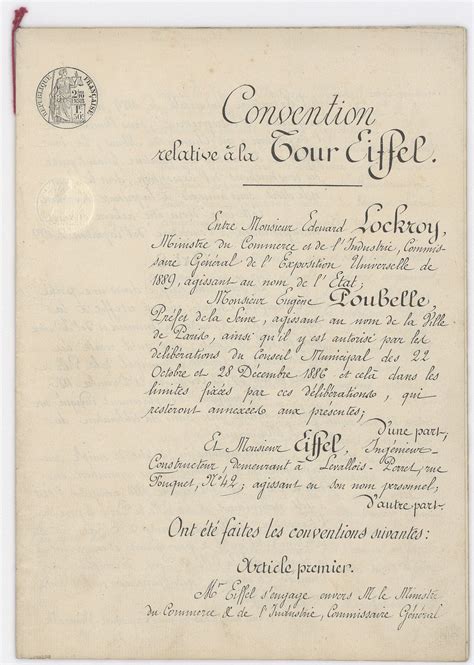 RÉPUBLIQUE FRANÇAISE
Convention
relative à la Tour Eiffel.
Entre Monsieur Edouard Lockroy,
Ministre du Commerce et de l'Industrie, Commis-
saire Général de l'Exposition Universelle de
1889, agissant au nom de l'Etat;
Monsieur Eugène Poubelle,
Préfet de la Seine, agissant au nom de la Ville
de Paris, ainsi qu'il y est autorisé par les
délibérations du Conseil Municipal des 22
Octobre et 28 Décembre 1886 et celà dans les
limites fixées par ces délibérations, qui
resteront annexées aux présentes;
D'une part,
Et Monsieur Eiffel, Ingénieur-
Constructeur, demeurant à Levallois-Perret, rue
Fouquet, N° 42; agissant en son nom personnel;
D'autre part.
Ont été faites les conventions suivantes:
Article premier.
Mr Eiffel s'engage envers M. le Ministre
du Commerce & de l'Industrie, Commissaire Général